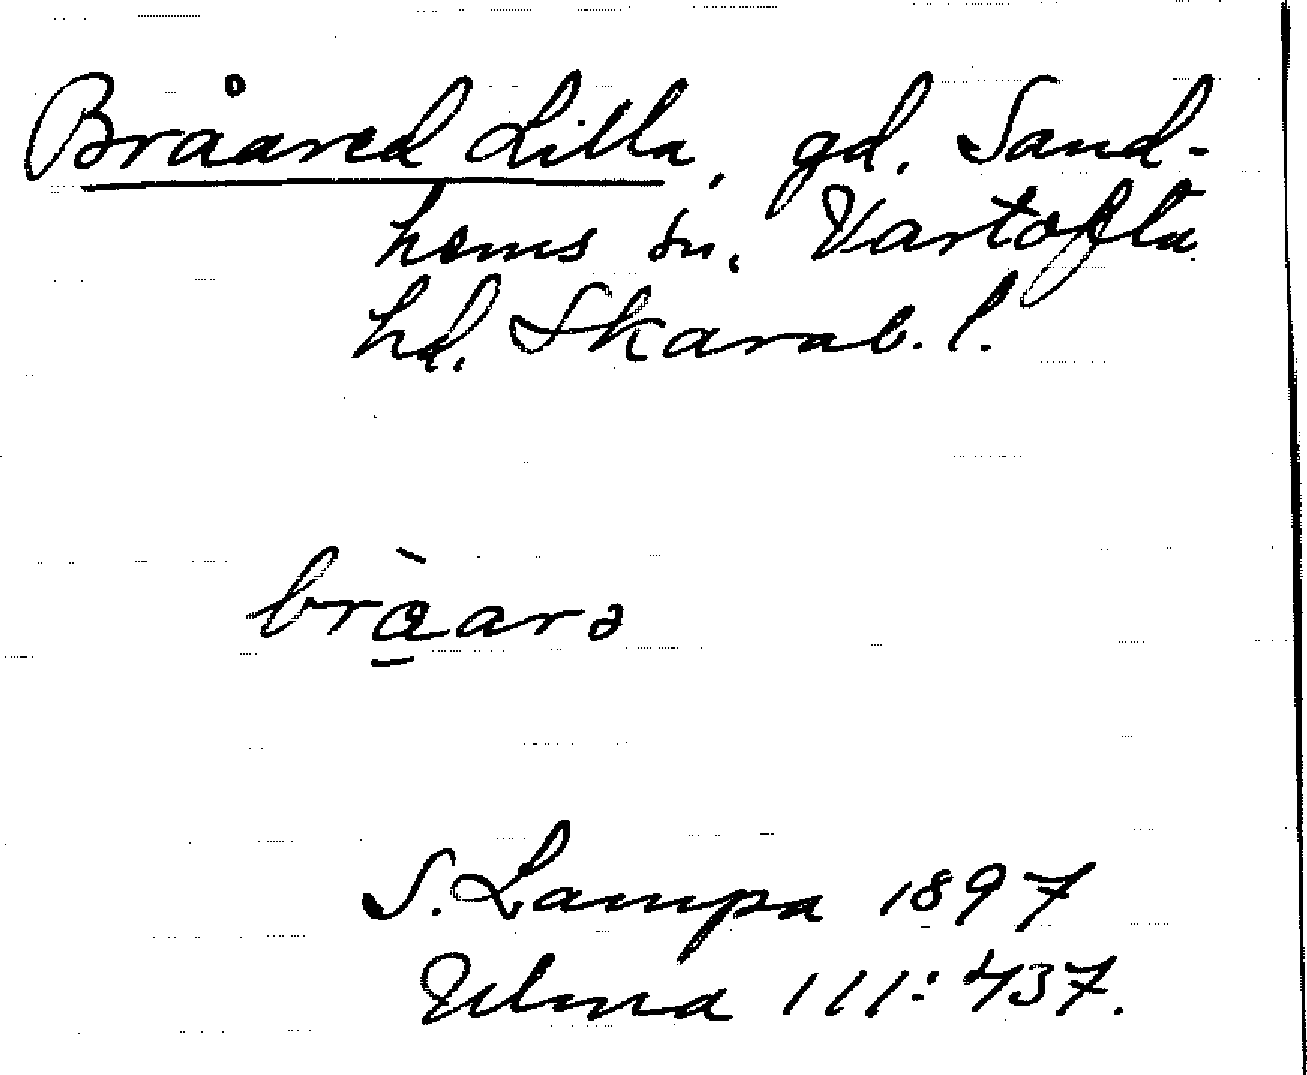 Bråared Lilla, gd. Sand-
hems sn. Vartofta
hd. Skarab. l.
brå̀arə
S. Lampa 1897
Ulma 111:437.